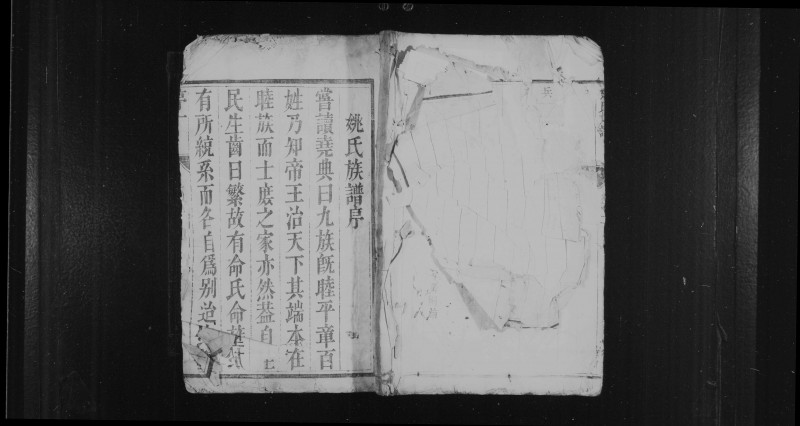 姚氏族譜序
嘗讀堯典曰九族既睦平章百
姓乃知帝王治天下其端本在
睦族而士庶之家亦然葢自
民生齒日繁故有命氏命
有所統系而各自爲別